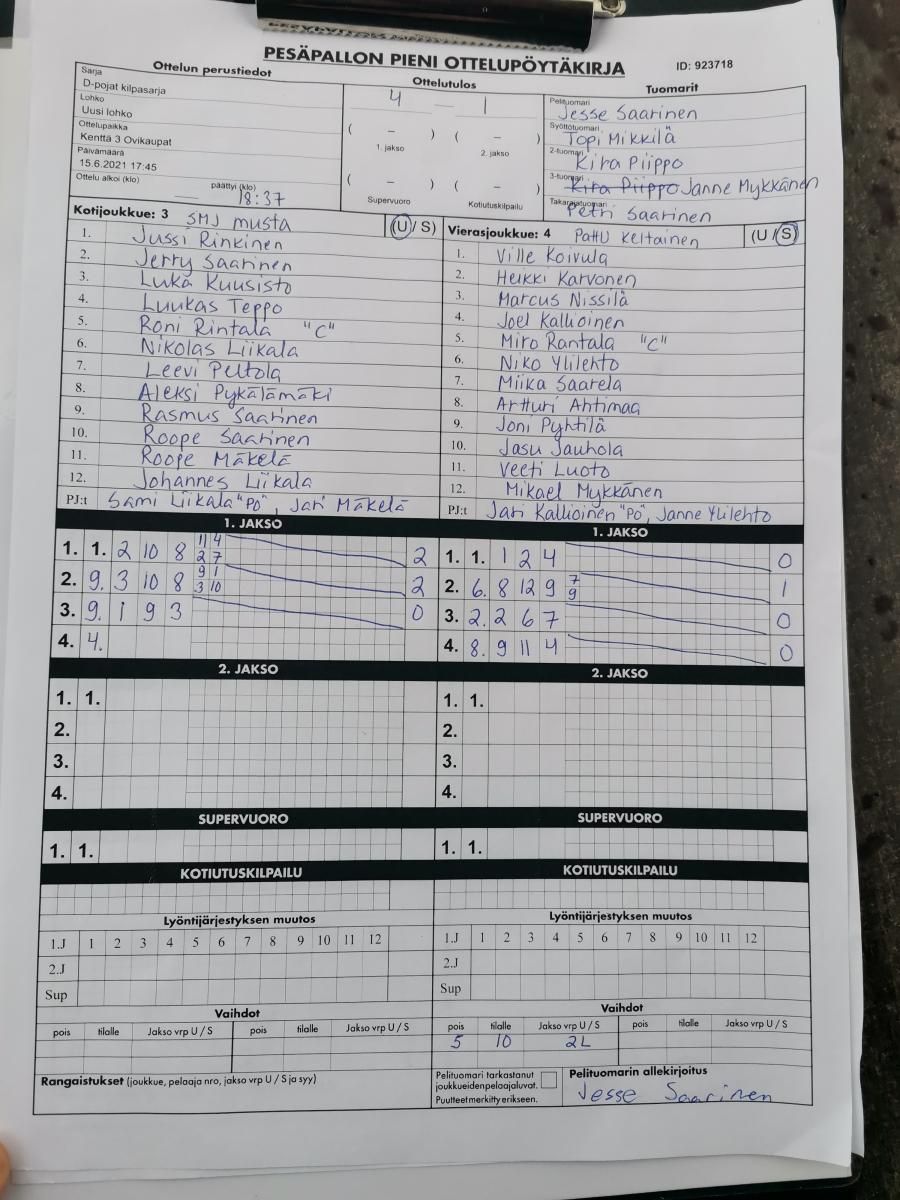 PESÄPALLON PIENI OTTELUPÖYTÄKIRJA
ID: 923718
Ottelun perustiedot
Sarja
D-pojat kilpasarja
Lohko
Uusi lohko
Ottelupaikka
Kenttä 3 Ovikaupat
Päivämäärä
15.6.2021 17:45
Ottelu alkoi (klo) — päättyi (klo) 18:37
Ottelutulos
4 — 1
( – ) ( – )
1. jakso 2. jakso
( – ) ( – )
Supervuoro Kotiutuskilpailu
Tuomarit
Pelituomari
Jesse Saarinen
Syöttötuomari
Topi Mikkilä
2-tuomari
Kira Piippo
3-tuomari
Kira Piippo Janne Mykkänen
Takarajatuomari
Petri Saarinen
Kotijoukkue: 3 SMJ musta (U / S)
1. Jussi Rinkinen
2. Jerry Saarinen
3. Luka Kuusisto
4. Luukas Teppo
5. Roni Rintala "C"
6. Nikolas Liikala
7. Leevi Peltola
8. Aleksi Pykälämäki
9. Rasmus Saarinen
10. Roope Saarinen
11. Roope Mäkelä
12. Johannes Liikala
PJ:t Sami Liikala "PO", Jari Mäkelä
Vierasjoukkue: 4 PattU Keltainen (U / S)
1. Ville Koivula
2. Heikki Karvonen
3. Marcus Nissilä
4. Joel Kallioinen
5. Miro Rantala "C"
6. Niko Ylilehto
7. Miika Saarela
8. Artturi Ahtimaa
9. Joni Pyhtilä
10. Jasu Jauhola
11. Veeti Luoto
12. Mikael Mykkänen
PJ:t Jari Kallioinen "PO", Janne Ylilehto
1. JAKSO
1. 1. 2 10 8 11 4 2
2 7
2. 9. 3 10 8 9 1 2
3 10
3. 9. 1 9 3 0
4. 4.
1. JAKSO
1. 1. 1 2 4 0
2. 6. 8 12 9 7 1
9
3. 2. 2 6 7 0
4. 8. 9 11 4 0
2. JAKSO
1. 1.
2.
3.
4.
2. JAKSO
1. 1.
2.
3.
4.
SUPERVUORO
1. 1.
SUPERVUORO
1. 1.
KOTIUTUSKILPAILU
Lyöntijärjestyksen muutos
1.J 1 2 3 4 5 6 7 8 9 10 11 12
2.J
Sup
KOTIUTUSKILPAILU
Lyöntijärjestyksen muutos
1.J 1 2 3 4 5 6 7 8 9 10 11 12
2.J
Sup
Vaihdot
pois tilalle Jakso vrp U / S pois tilalle Jakso vrp U / S
Vaihdot
pois tilalle Jakso vrp U / S pois tilalle Jakso vrp U / S
5 10 2L
Rangaistukset (joukkue, pelaaja nro, jakso vrp U / S ja syy)
Pelituomari tarkastanut
joukkueidenpelaajaluvat.
Puutteet merkitty erikseen.
Pelituomarin allekirjoitus
Jesse Saarinen